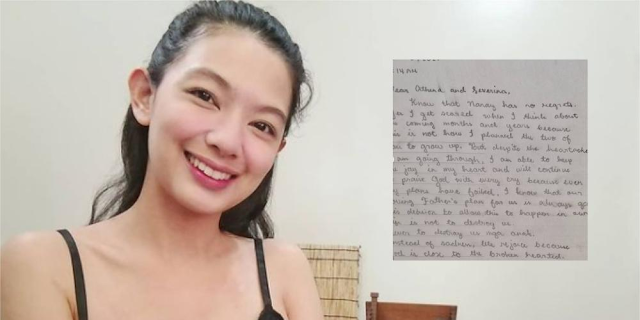 14 AM
ear Athena and Severina,
Know that Nanay has no regrets.
I get scared when I think about
coming months and years because
is is not how I planned the two of
to grow up. But despite the heartache
am going through, I am able to keep
joy in my heart and will continue
praise God with every because even
plans have failed, I know that our
ving Father's plan for us is always go
to allow this to happen in our
is not to destroy us.
to destroy us
nstead of let's rejoice because
is close to the broken hearted